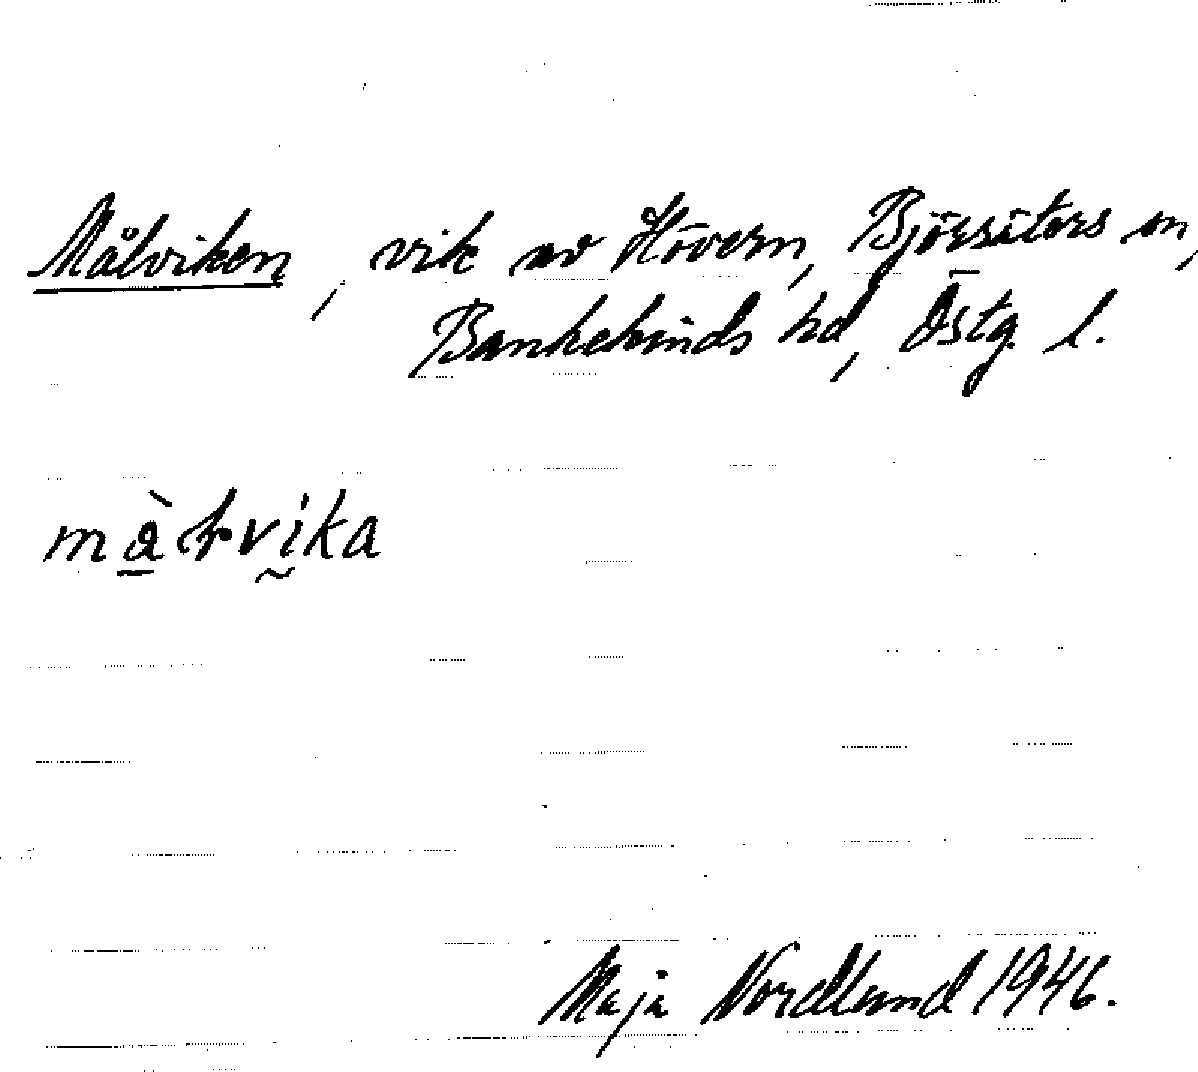 Målviken, vik av Hövern, Björsäters sn,
Bankekinds hd, Östg. l.
Maja Nordlund 1946.